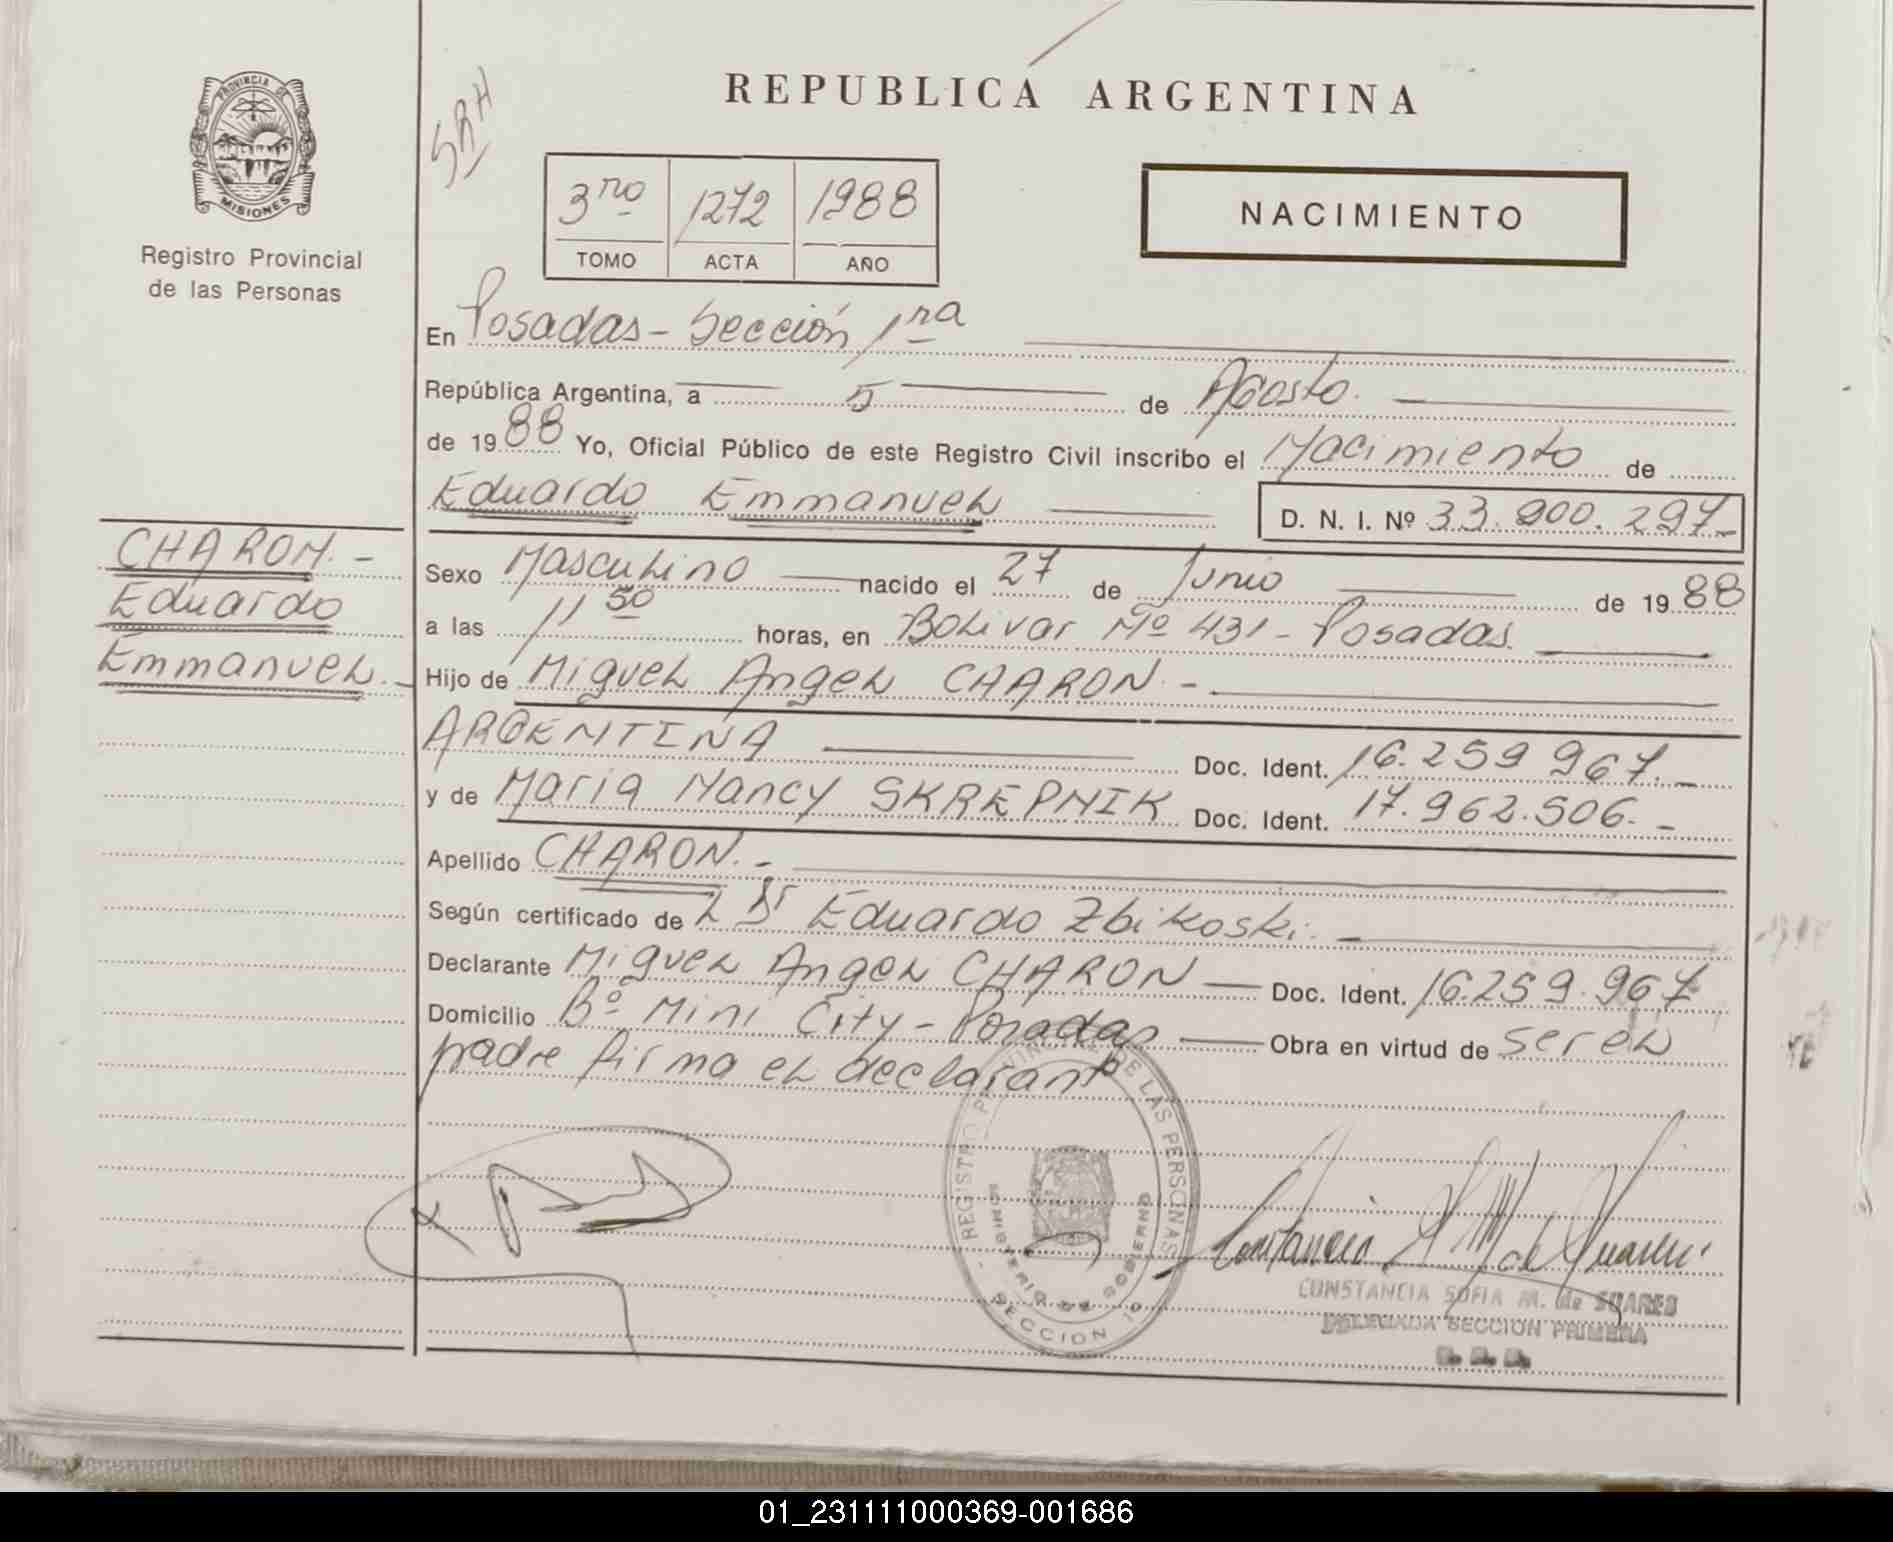 PROVINCIA DE
MISIONES
Registro Provincial
de las Personas
SRH
REPUBLICA ARGENTINA
3ro 1272 1988
TOMO ACTA AÑO
NACIMIENTO
En Posadas - Sección 1ra
República Argentina, a 5 de Agosto.
de 1988 Yo, Oficial Público de este Registro Civil inscribo el Nacimiento de
Eduardo Emmanuel D. N. I. Nº 33.900.297-
CHARON.-
Eduardo
Emmanuel.-
Sexo Masculino nacido el 27 de Junio de 1988
a las 11 50 horas, en Bolivar Nº 431 - Posadas.
Hijo de Miguel Angel CHARON.-
ARGENTINA Doc. Ident. 16.259 967.-
y de Maria Nancy SKREPNIK Doc. Ident. 17.962.506.-
Apellido CHARON.-
Según certificado de L Dr Eduardo Zbikoski.-
Declarante Miguel Angel CHARON Doc. Ident. 16.259.967
Domicilio Bº Mini City - Posadas Obra en virtud de ser el
padre firma el declarant
REGISTRO PROVINCIAL DE LAS PERSONAS
MINISTERIO DE GOBIERNO
SECCION 1º
Constancia de Suares
CONSTANCIA SOFIA M. de SUARES
DELEGADA SECCION PRIMERA
01_231111000369-001686